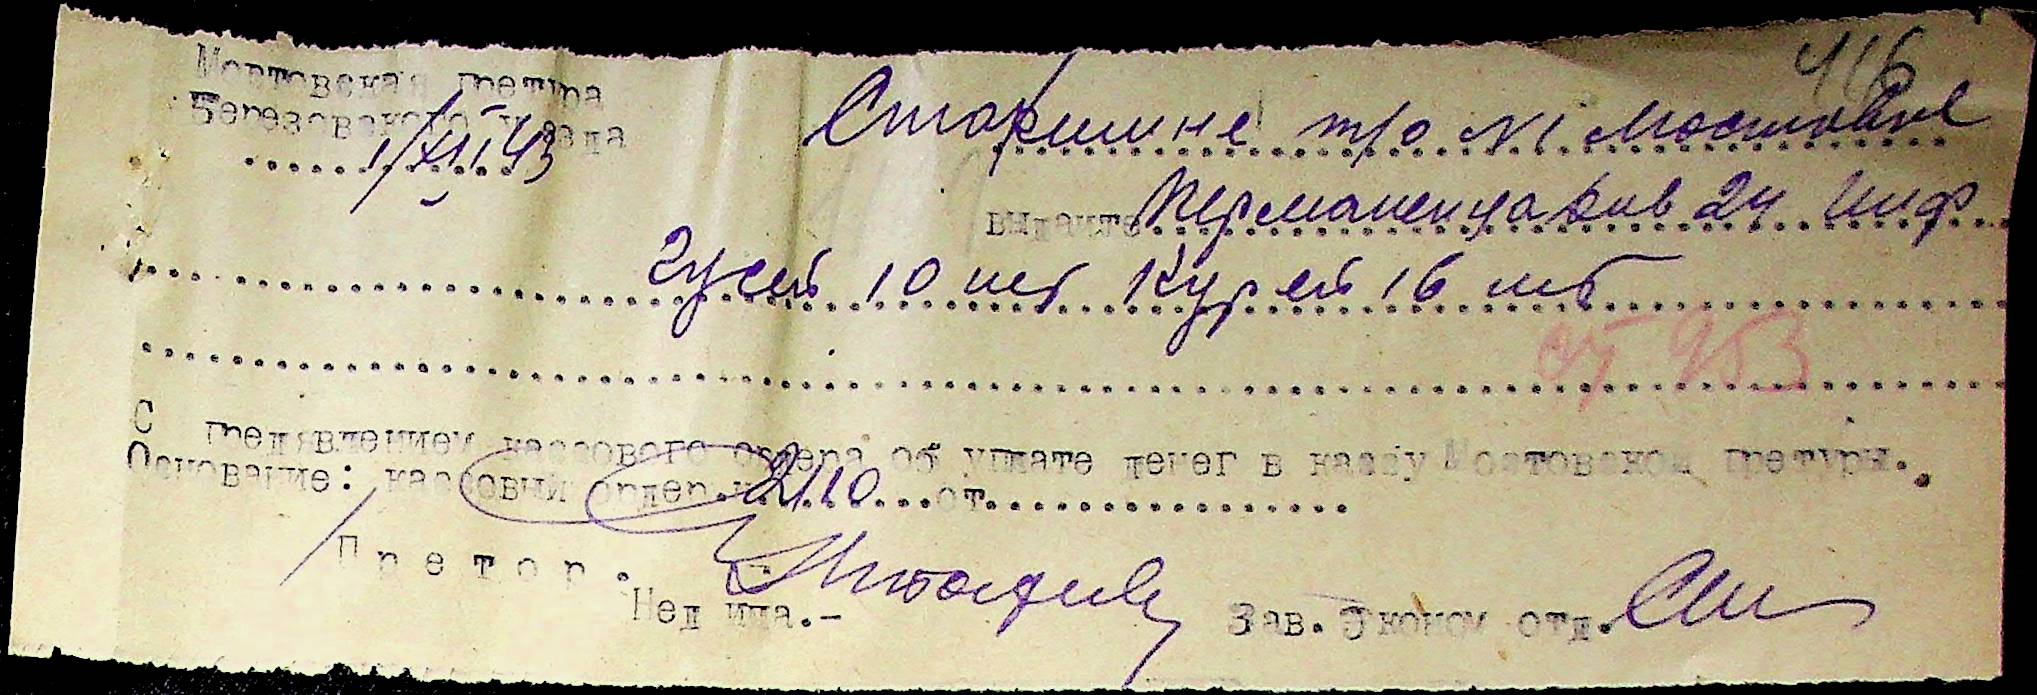 416
Мостовская претура
Березовского уезда
1/XII 43
Старшине т/о N1 Мостовое
выдайте
24 Инф
Гусей 10 шт Курей 16 шт
953
С предявлением кассового ордера об уплате денег в кассу Мостовской претуры.
Основание: кассовый ордер.н. 2110 от
Претор.
Недица.-
Зав. Эконом отд.